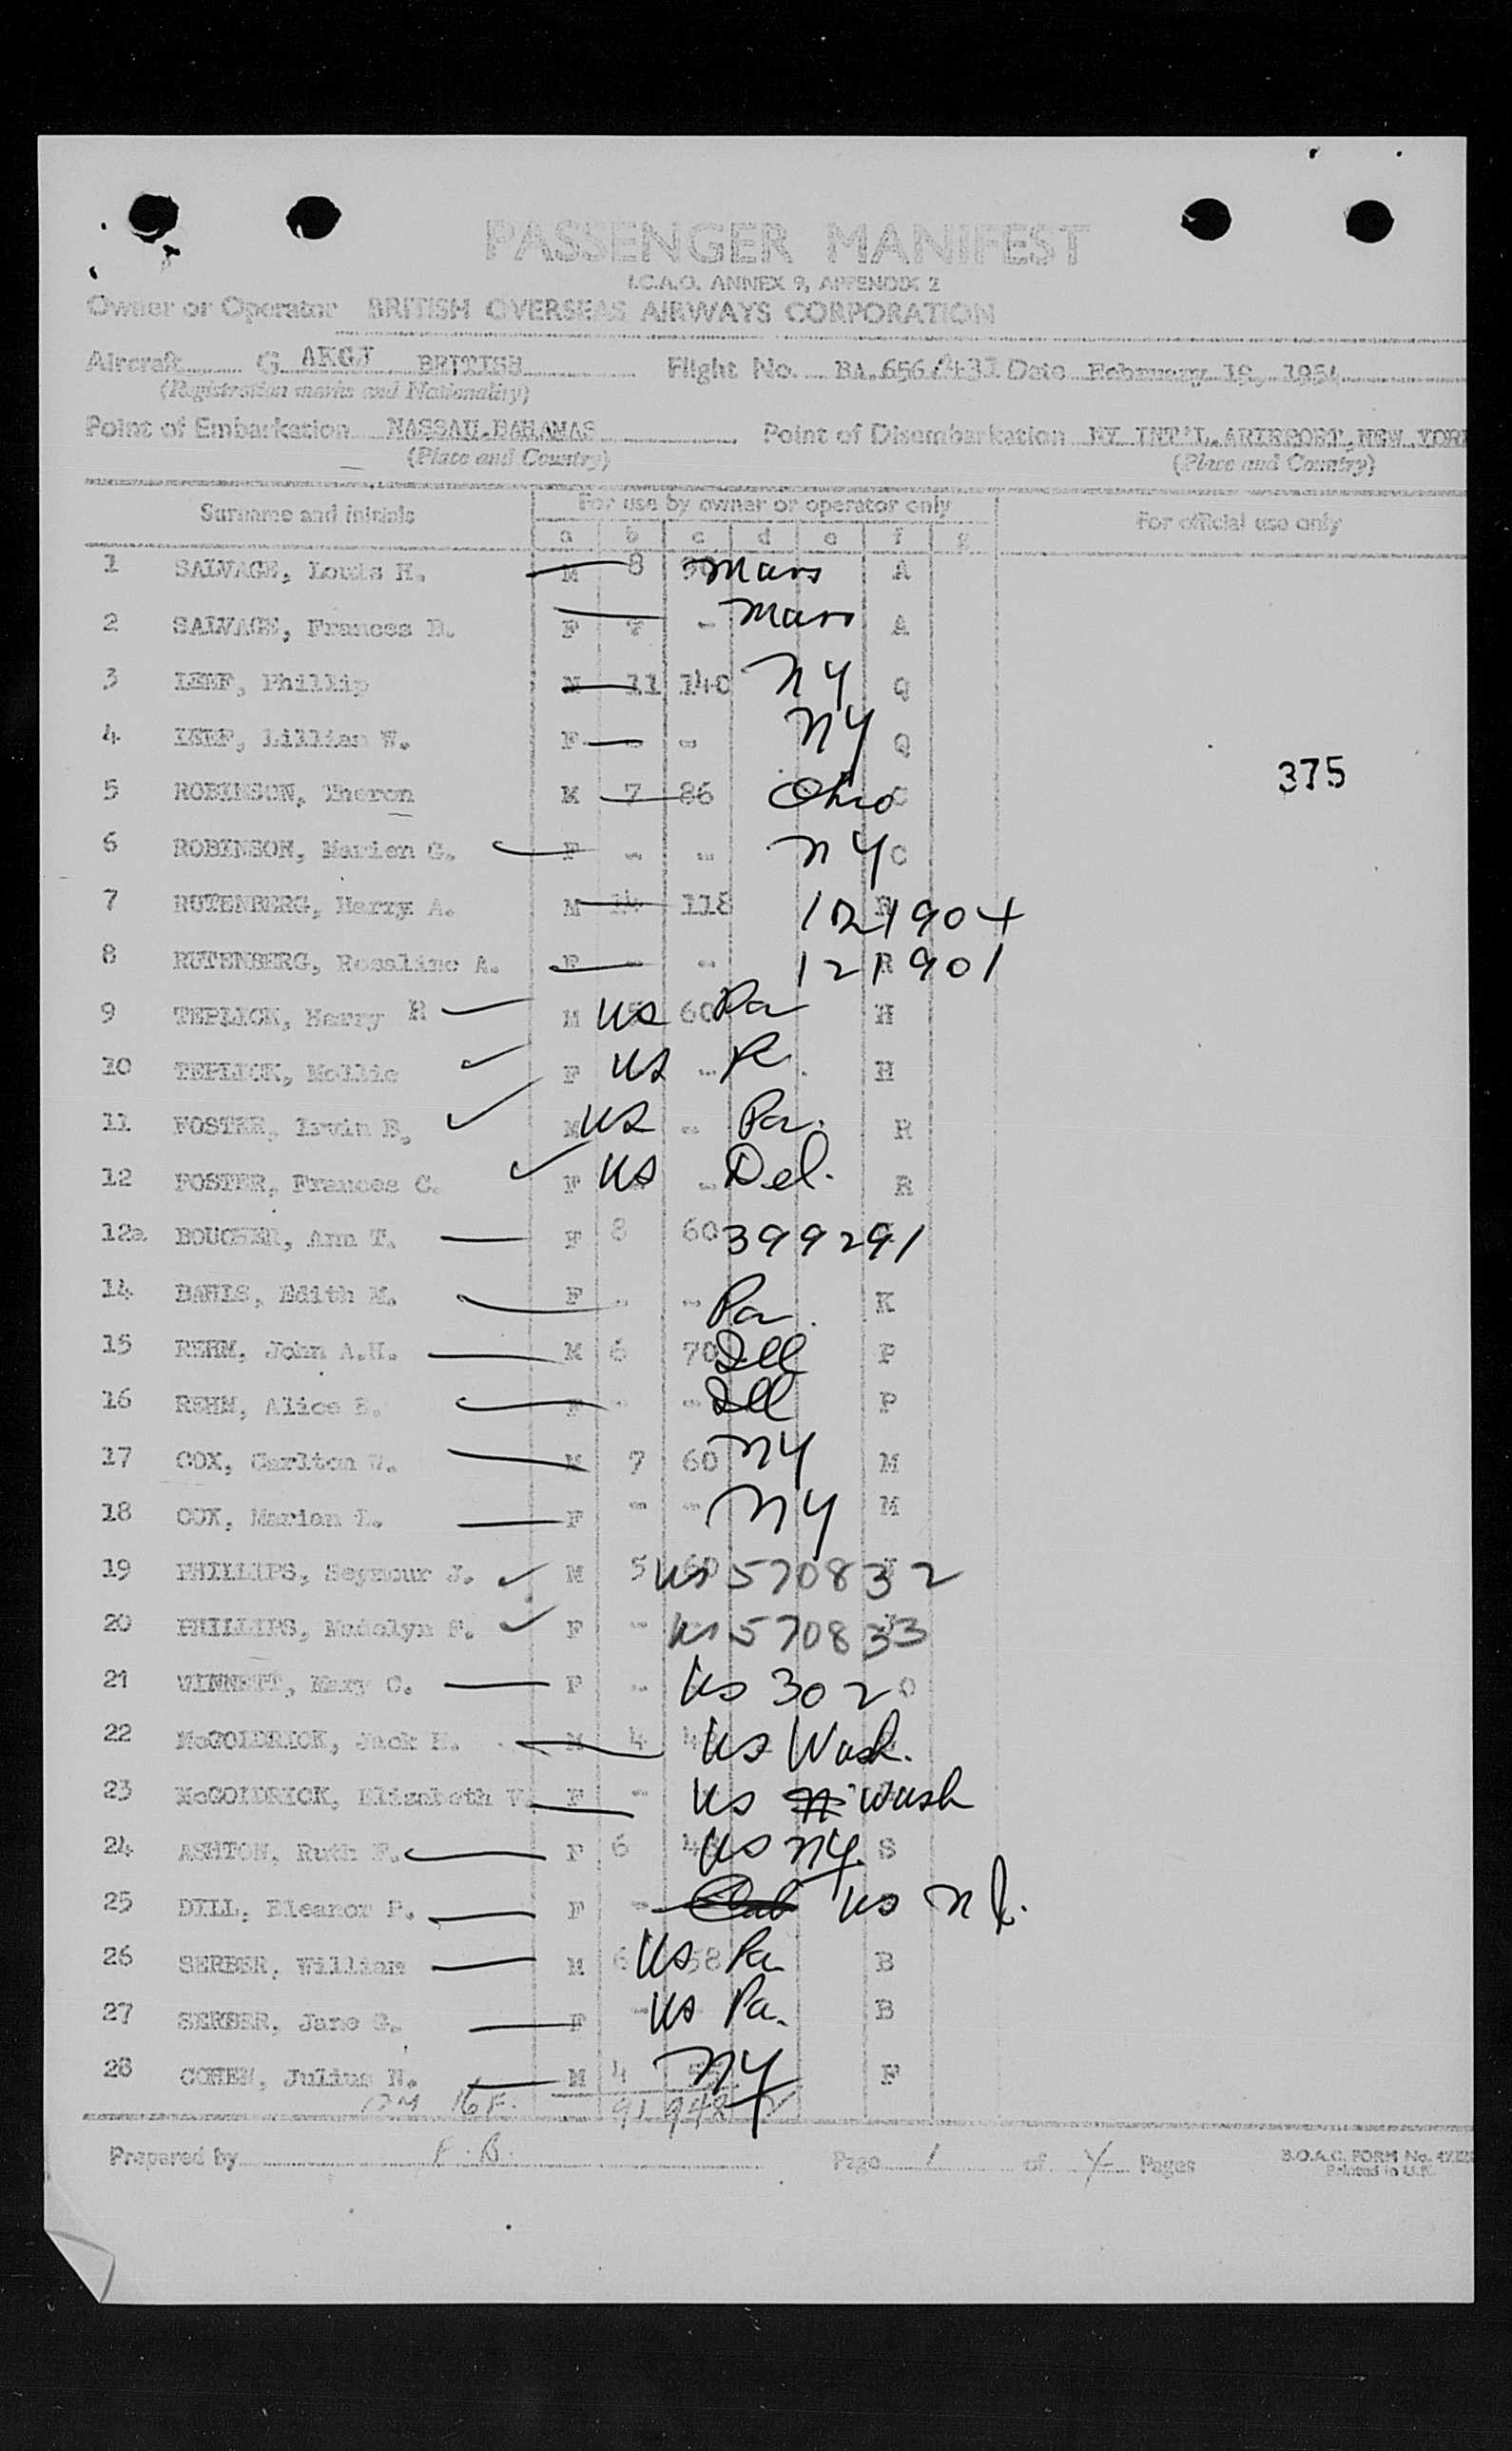 PASSENGER MANIFEST
I.C.A.O. ANNEX 9, APPENDIX 2
Owner or Operator BRITISH OVERSEAS AIRWAYS CORPORATION
Aircraft G AKGJ BRITISH Flight No. BA.656/ Date February 1954
(Registration marks and Nationality)
Point of Embarkation NASSAU.BAHAMAS Point of Disembarkation NY INT'L. NEW YORK
(Place and Country) (Place and Country)
Surname and initials For use by owner or operator only For official use only
a b c d e f g
1 SALVAGE, Louis H. M 8 Mass A
2 SALVAGE, Frances F - Mass A
3 Phillip M 11 140 NY Q
4 Lillian W. F - - NY Q
375
5 ROBINSON, Theron M 7 86 Ohio C
6 ROBINSON, Marion G. F - - NY C
7 RUTENBERG, Harry A. M 14 118 R 121904
8 RUTENBERG, Rosaline A. F - - R 121901
9 TEPLICK, Harry R M 5 US 60 Pa H
10 TEPLICK, Mollie F US - Pa H
11 FOSTER, Irvin M US - Pa. R
12 FOSTER, Frances C. F US - Del. R
12a BOUCHER, Ann T. F 8 60 399291
14 Edith M. F - - Pa. K
15 REHM, John A.H. M 6 70 Del P
16 REHM, Alice F - - Del P
17 COX, Carlton W. M 7 60 NY M
18 COX, Marion L. F - - NY M
19 PHILLIPS, Seymour J. M 5 60 US 570832
20 PHILLIPS, Madolyn F. F - US 570833
21 Mary C. F - US 3020 O
22 McGOLDRICK, Jack M 4 US Wash.
23 McGOLDRICK, Elizabeth V. F - US Wash
24 ASHTON, Ruth F. F 6 US NY. S
25 DILL, Eleanor P. F - US
26 SERBER, William M 6 58 US Pa B
27 SERBER, Jane F - US Pa. B
28 COHEN, Julius N. M 4 NY F
16 F. 91 948
Prepared by F.B. Page 1 of Pages
B.O.A.C. FORM No.
Printed in U.K.